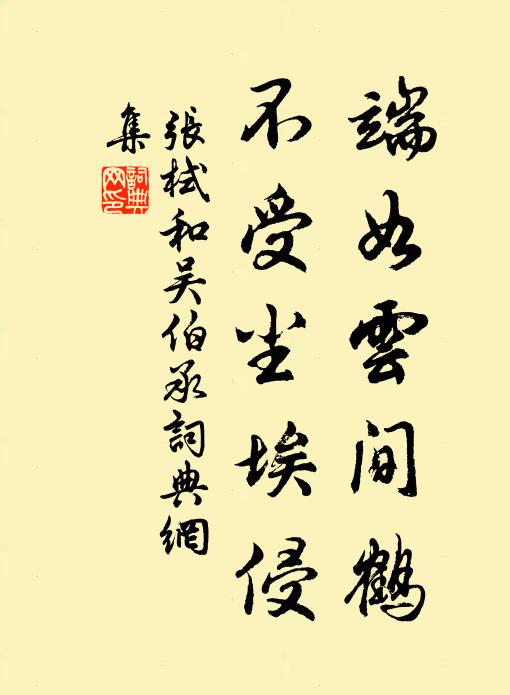 端如雲间鶴
不受尘埃侵
張栻和吴伯承詞典網
集
詞典网印